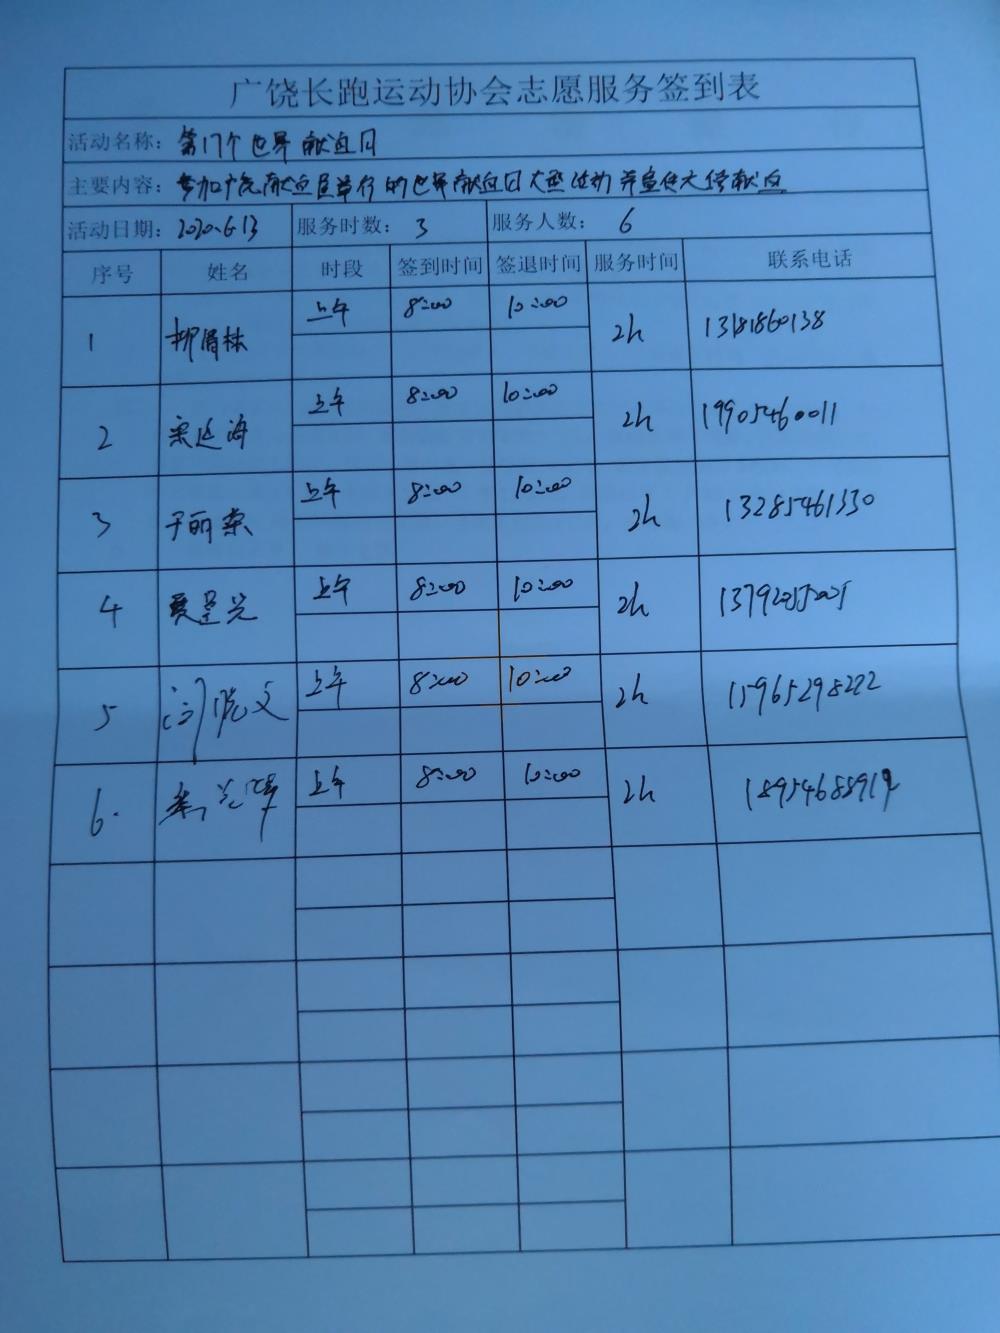 广饶长跑运动协会志愿服务签到表
活动名称：第17个世界献血日
主要内容：参加广饶献血屋举行的世界献血日大型活动并宣传无偿献血
活动日期：2020.6.13 服务时数：3 服务人数：6
序号 姓名 时段 签到时间 签退时间 服务时间 联系电话
1 上午 8:00 10:00 2h
2 宋延海 上午 8:00 10:00 2h 19905460011
3 于丽荣 上午 8:00 10:00 2h 13285461330
4 上午 8:00 10:00 2h
5 闫晓文 上午 8:00 10:00 2h 15965298222
6. 上午 8:00 10:00 2h